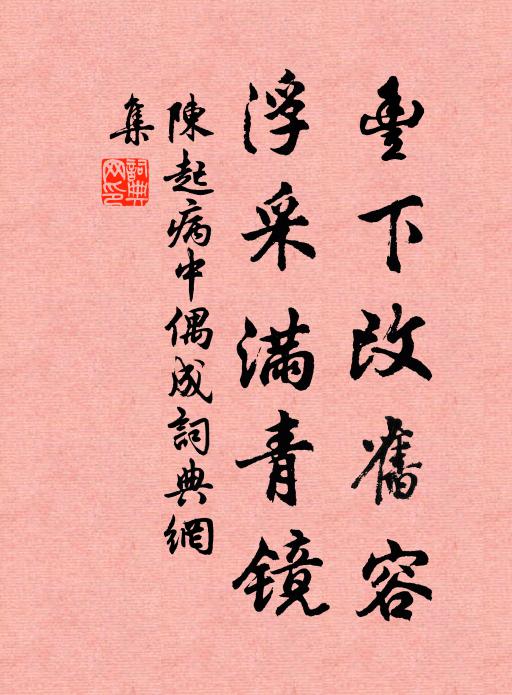 豐下改舊容
浮采滿青镜
陳起病中偶成詞典網
集
詞典網印